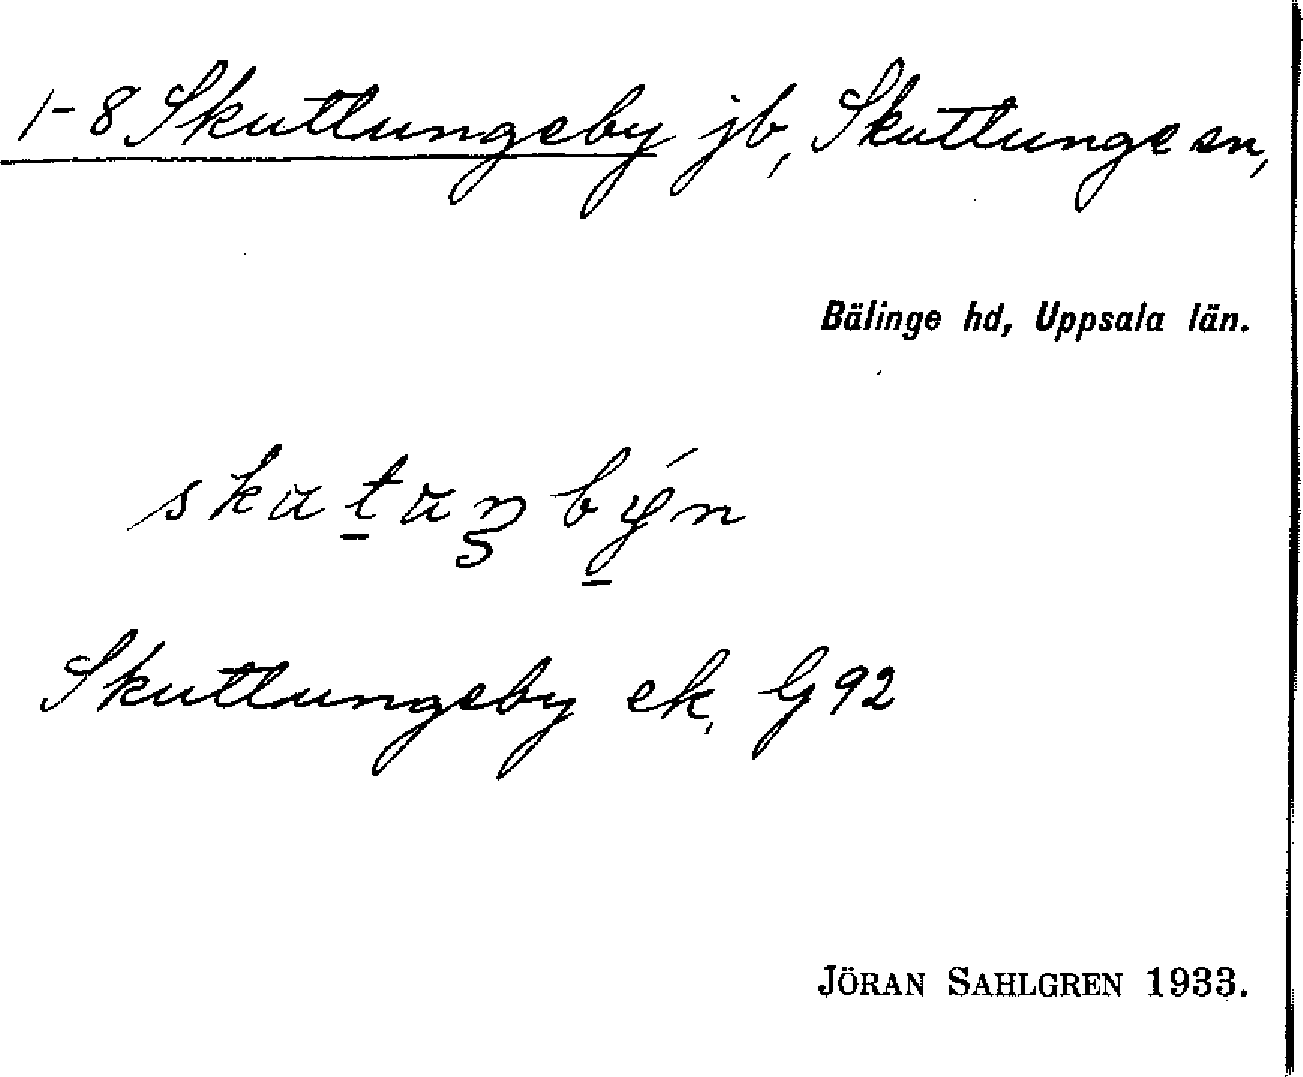 1-8 Skuttungeby jb, Skuttunge sn,
Bälinge hd, Uppsala län.
Skuttungeby ek, G 92
JÖRAN SAHLGREN 1933.